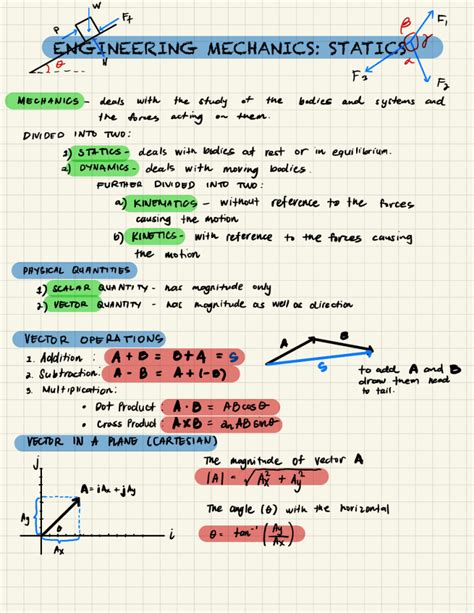 W
P
Ff
N
θ
ENGINEERING MECHANICS: STATICS
β
F₁
γ
α
F₃
F₂
MECHANICS - deals with the study of the bodies and systems and
the forces acting on them.
DIVIDED INTO TWO:
1) STATICS - deals with bodies at rest or in equilibrium.
2) DYNAMICS - deals with moving bodies.
FURTHER DIVIDED INTO TWO:
a) KINEMATICS - without reference to the forces
causing the motion
b) KINETICS - with reference to the forces causing
the motion
PHYSICAL QUANTITIES
1) SCALAR QUANTITY - has magnitude only
2) VECTOR QUANTITY - has magnitude as well as direction
VECTOR OPERATIONS
1. Addition : A + B = B + A = S
2. Subtraction: A - B = A + (-B)
3. Multiplication:
• Dot Product : A · B = AB cos θ
• Cross Product : A × B = an AB sin θ
A
B
S
to add A and B
draw them head
to tail.
VECTOR IN A PLANE (CARTESIAN)
j
A = iAx + jAy
Ay
θ
i
Ax
The magnitude of vector A
|A| = √Ax² + Ay²
The angle (θ) with the horizontal
θ = tan⁻¹ (Ay/Ax)